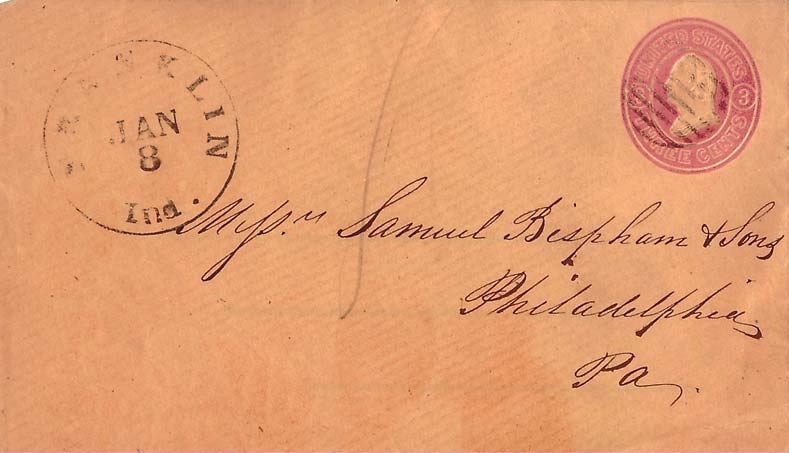 FRANKLIN
JAN
8
Ind.
UNITED STATES
3 3
THREE CENTS
Messrs Samuel Bispham & Sons
Philadelphia
Pa.